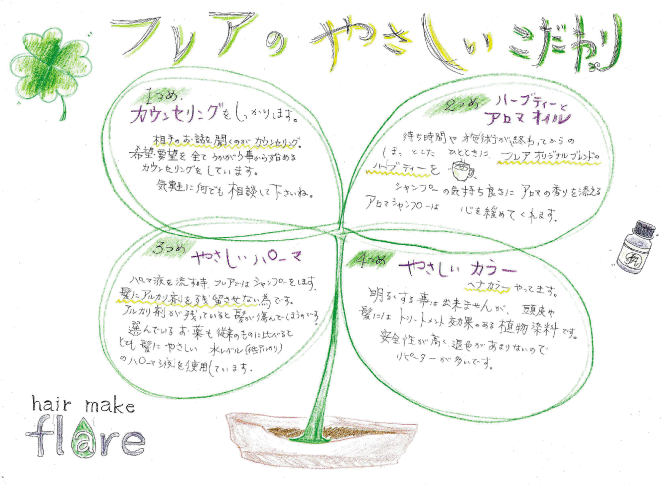 フレアの やさしい こだわり
1つめ
カウンセリングをしっかりします。
相手のお話を聞くのがカウンセリング。
希望要望を全てうかがう事から始める
カウンセリングをしています。
気軽に何でも相談して下さいね。
2つめ ハーブティーと
アロマオイル
待ち時間や施術が終わってからの
ほっとした ひとときに フレアオリジナルブレンドの
ハーブティーを
シャンプーの気持ち良さに アロマの香りを添える
アロマシャンプーは 心を緩めてくれます。
3つめ やさしいパーマ
パーマ液を流す時 フレアではシャンプーをします。
髪にアルカリ剤を残留させない為です。
アルカリ剤が残っていると髪が傷んでしまうのです。
選んでいるお薬も従来のものに比べると
とても 髪にやさしい 水レベル
のパーマ液を使用しています。
4つめ やさしい カラー
ヘナカラーやってます。
明るくする事は出来ませんが、頭皮や
髪にはトリートメント効果のある植物染料です。
安全性が高く退色があまりないので
リピーターが多いです。
hair make
flare